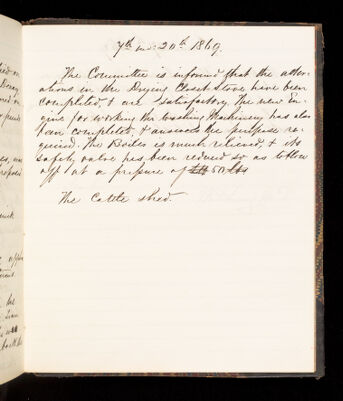 7th mo: 20th 1869.
The Committee is informed that the alter-
ations in the Drying Closet Stove have been
completed, & are satisfactory. The new En-
gine for working the washing Machinery has also
been completed, & answers the purpose re-
quired. The Boiler is much relieved, & its
safety valve has been reduced so as to blow
off at a pressure of 50 lbs
The Cattle shed.